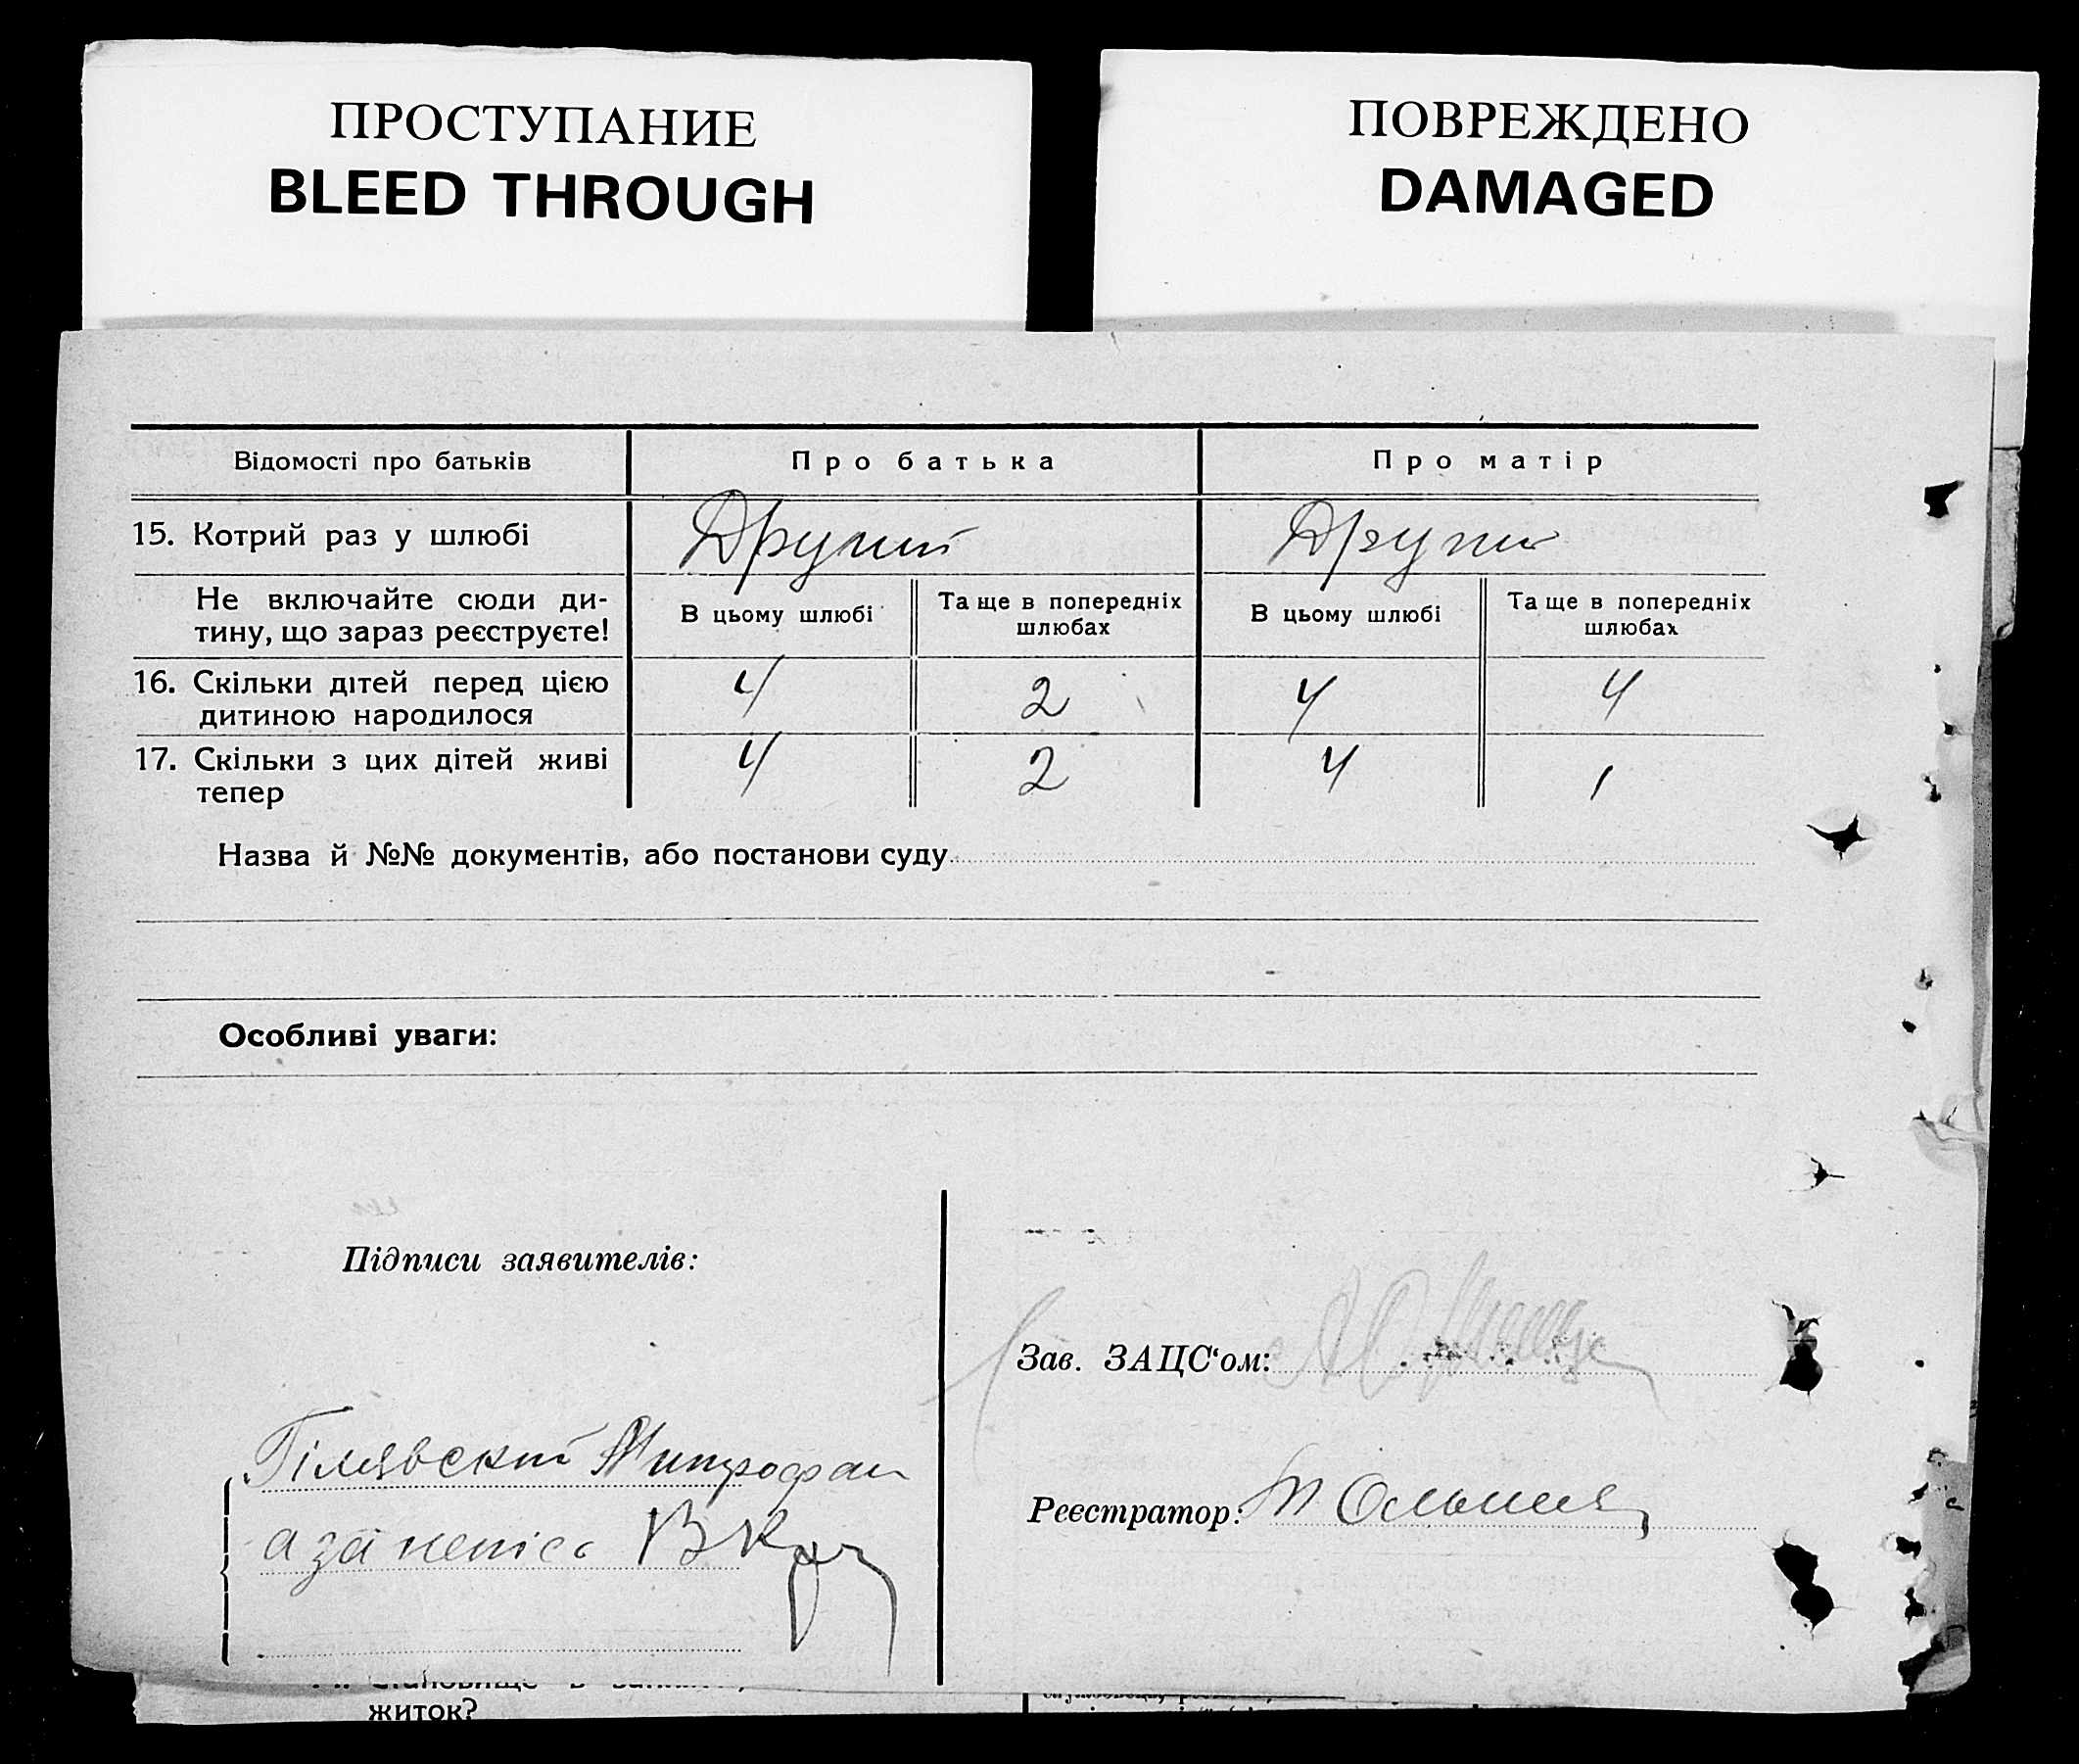 ПРОСТУПАНИЕ
BLEED THROUGH
ПОВРЕЖДЕНО
DAMAGED
Відомості про батьків
Про батька
Про матір
15. Котрий раз у шлюбі
Другий
Други
Не включайте сюди ди-
тину, що зараз реєструєте!
В цьому шлюбі
Та ще в попередніх
шлюбах
В цьому шлюбі
Та ще в попередніх
шлюбах
16. Скільки дітей перед цією
дитиною народилося
4
2
4
4
17. Скільки з цих дітей живі
тепер
4
2
4
1
Назва й №№ документів, або постанови суду
Особливі уваги:
Підписи заявителів:
Зав. ЗАЦС‘ом:
Гілявский Митрофан
Реєстратор:
житок?